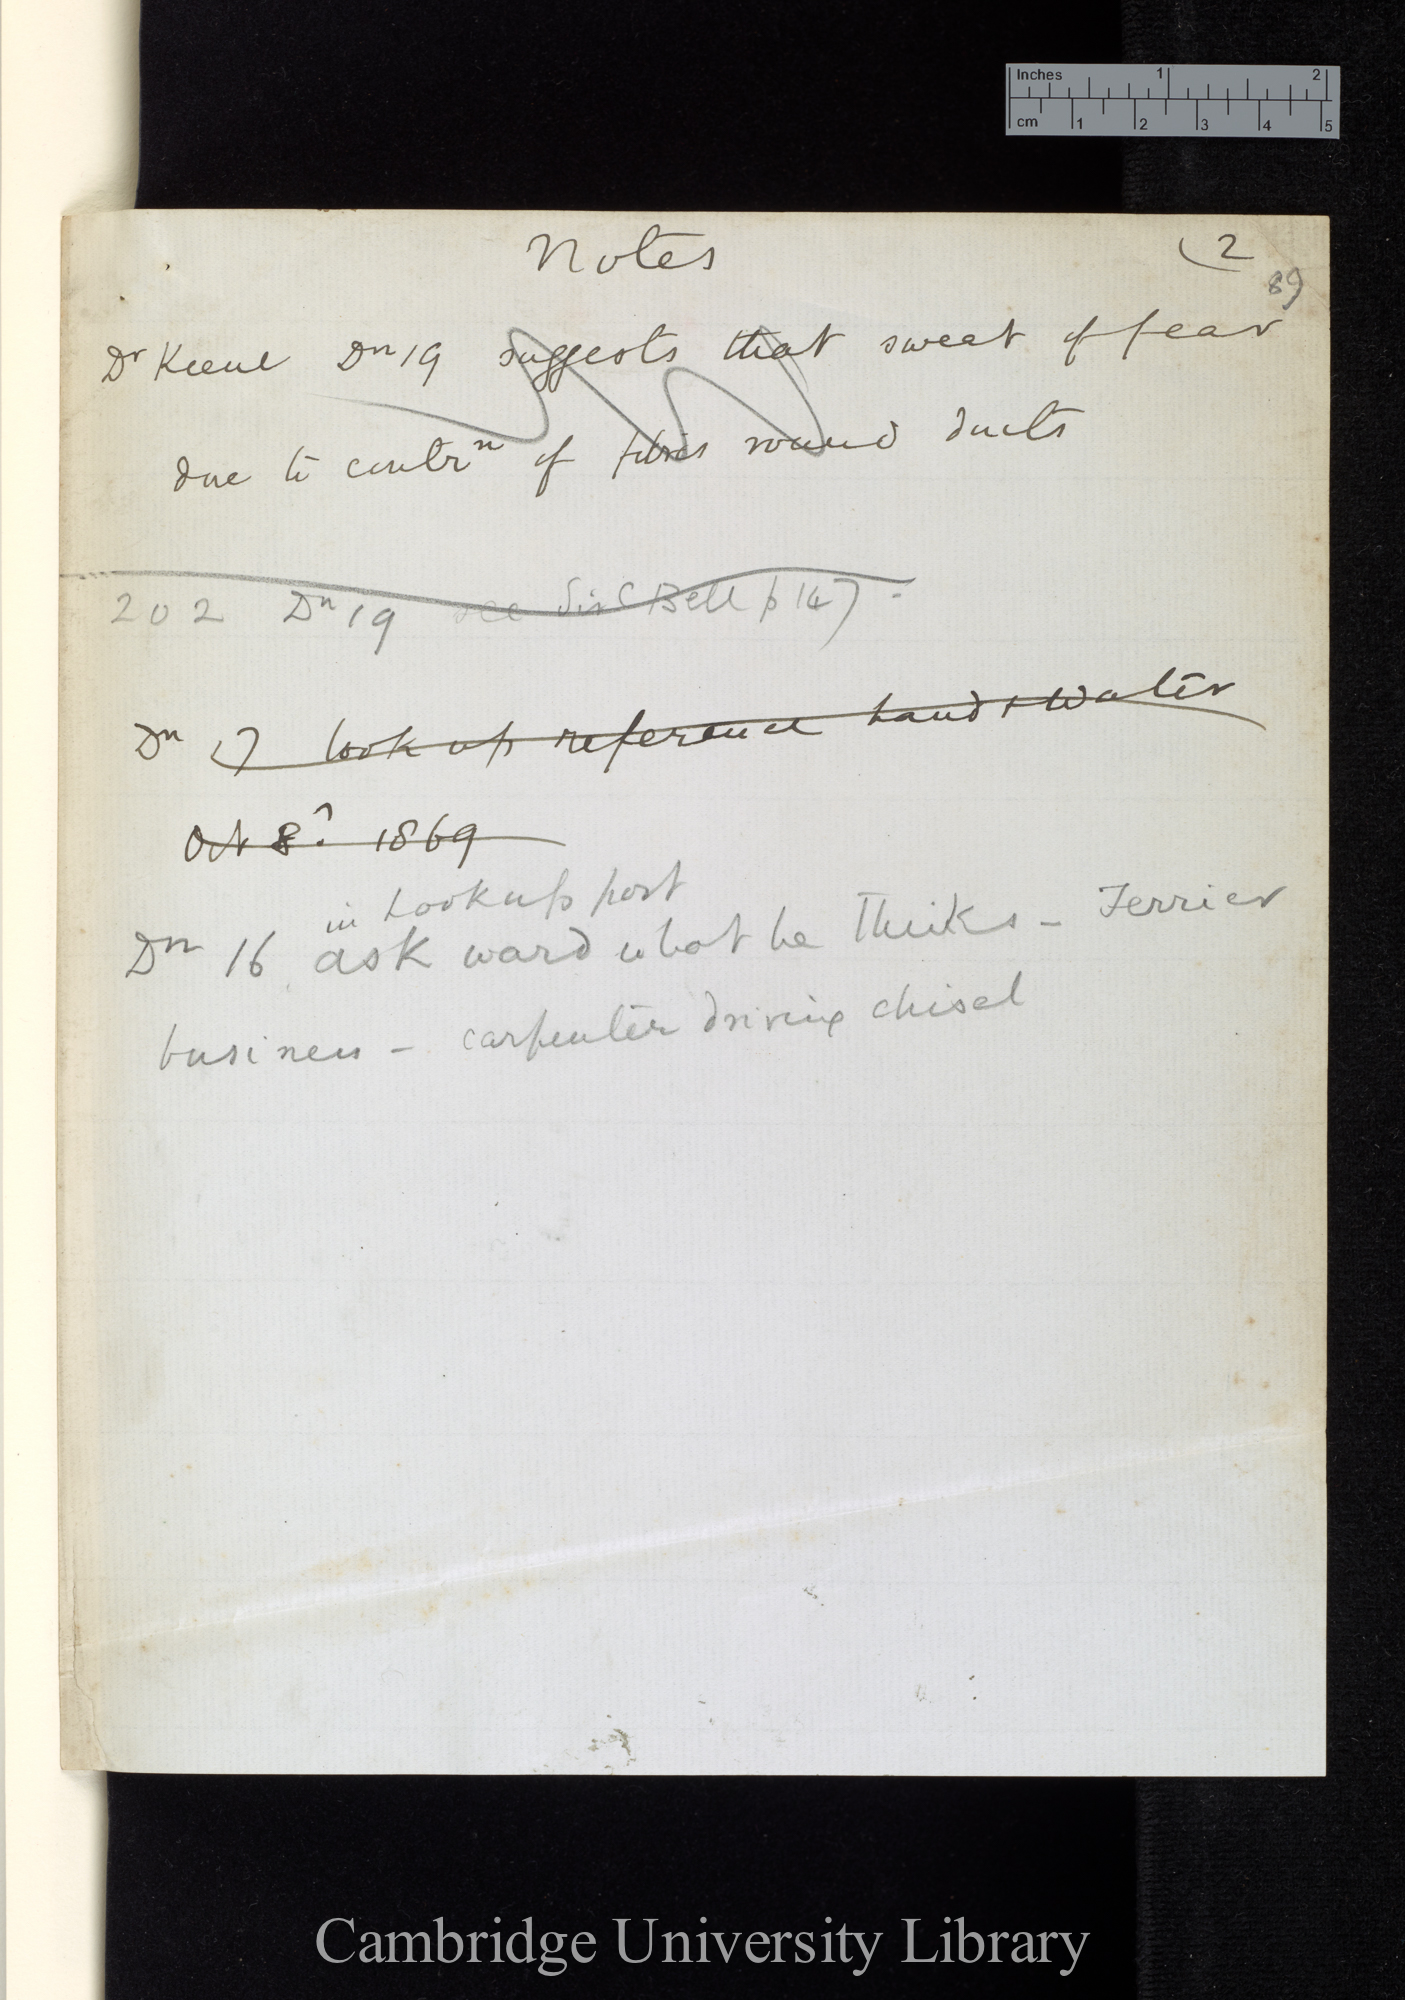 Inches 1 2
cm 1 2 3 4 5
Notes
(2
89
Dr Keene Dn 19 suggests that sweat of fear
due to contrn of fibres round ducts
202 Dn 19 see Sir C Bell p 147 -
Dn 17 look up reference Land & Water
Oct 8? 1869
in Lookup post
Dn 16 ask ward what he thinks - Terrier
business - carpenter driving chisel
Cambridge University Library